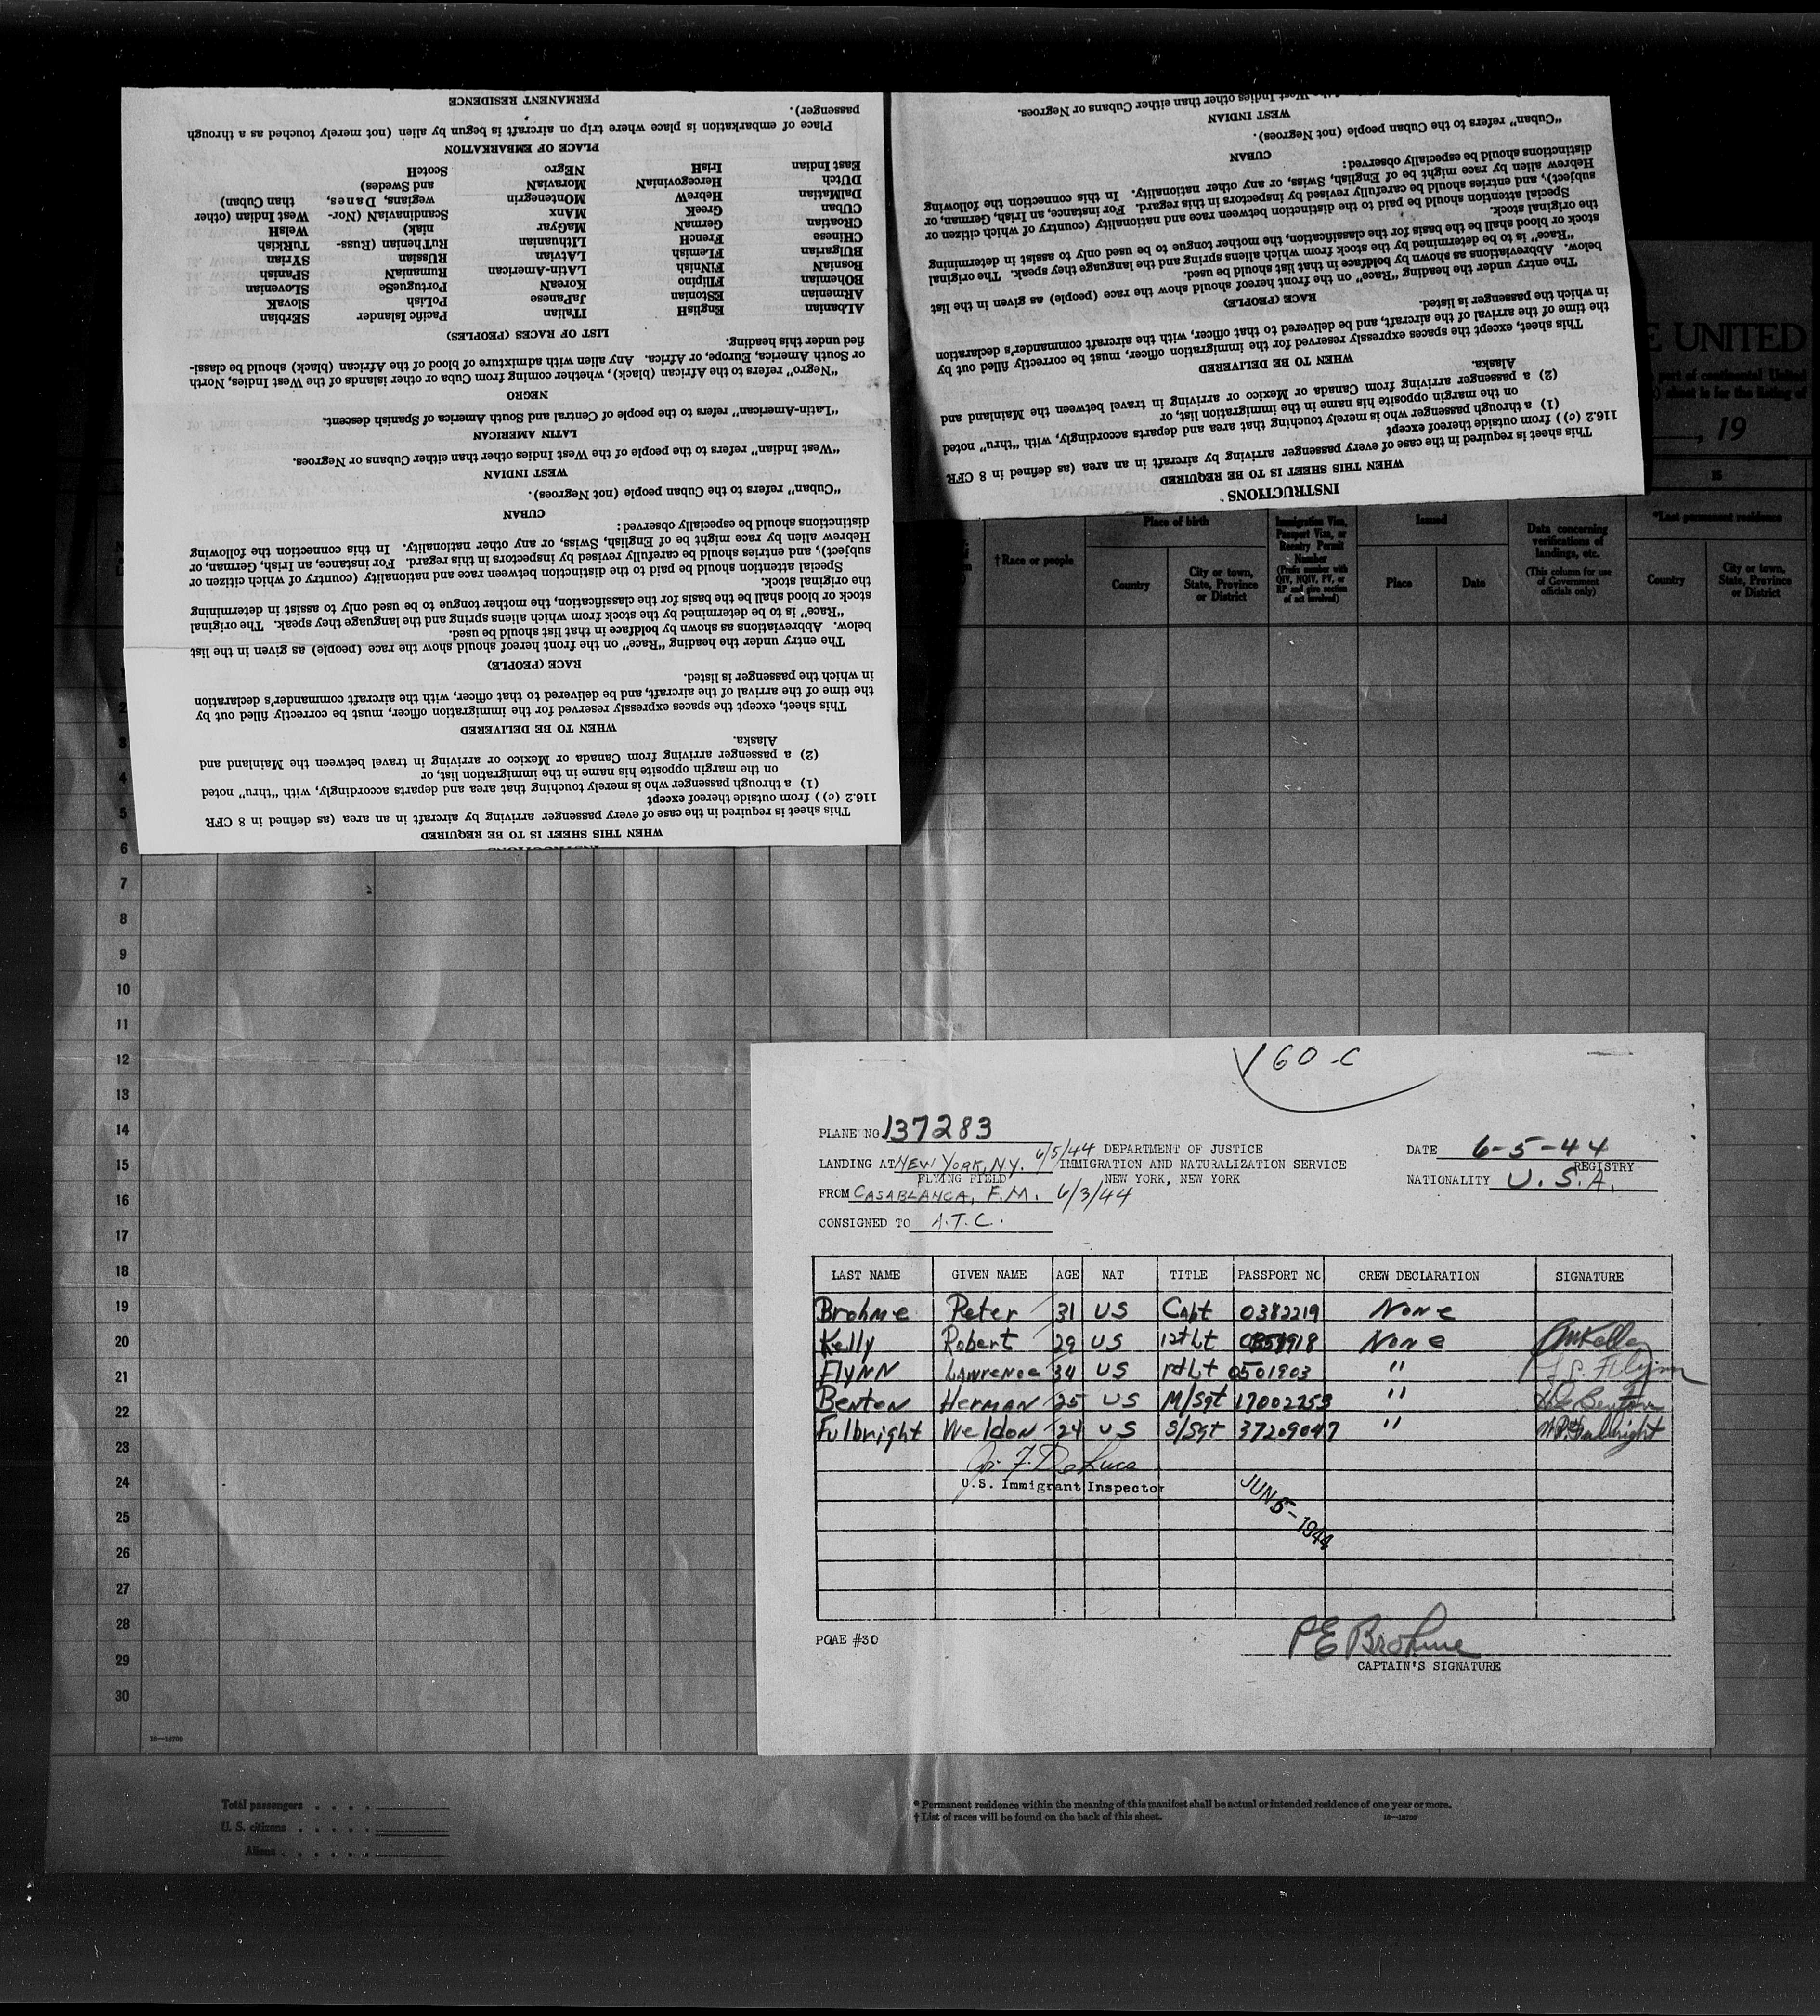 PERMANENT RESIDENCE
passenger).
Place of embarkation is place where trip on aircraft is begun by alien (not merely touched as a through
PLACE OF EMBARKATION
East Indian IrisH NEgro ScotcH
DUtch HercegoviniaN MoraviaN and Swedes)
DalMatian HebreW MOntenegrin wegians, Danes, than Cuban)
CUban GreeK MAnx Scandinavian (Nor- West Indian (other
CRoatian GermaN MaGyar niak) WelsH
CHinese FrencH Lithuanian RuThenian (Russ- TuRKish
BUlgarian FLemish LAtvian RUssian SYrian
BosniaN FINnish LAtin-American RumaniaN SPanish
BOhemian FIlipino KoreaN PortugueSe SLovenian
ARmenian EStonian JaPanese PoLish SlovaK
ALbanian EnglisH ITalian Pacific Islander SErbian
LIST OF RACES (PEOPLES)
fied under this heading.
or South America, Europe, or Africa. Any alien with admixture of blood of the African (black) should be classi-
"Negro" refers to the African (black), whether coming from Cuba or other islands of the West Indies, North
NEGRO
"Latin-American" refers to the people of Central and South America of Spanish descent.
LATIN AMERICAN
"West Indian" refers to the people of the West Indies other than either Cubans or Negroes.
WEST INDIAN
"Cuban" refers to the Cuban people (not Negroes).
CUBAN
distinctions should be especially observed:
Hebrew alien by race might be of English, Swiss, or any other nationality. In this connection the following
subject), and entries should be carefully revised by inspectors in this regard. For instance, an Irish, German, or
Special attention should be paid to the distinction between race and nationality (country of which citizen or
the original stock.
stock or blood shall be the basis for the classification, the mother tongue to be used only to assist in determining
"Race" is to be determined by the stock from which aliens spring and the language they speak. The original
below. Abbreviations as shown by boldface in that list should be used.
The entry under the heading "Race" on the front hereof should show the race (people) as given in the list
RACE (PEOPLE)
in which the passenger is listed.
the time of the arrival of the aircraft, and be delivered to that officer, with the aircraft commander's declaration
This sheet, except the spaces expressly reserved for the immigration officer, must be correctly filled out by
WHEN TO BE DELIVERED
Alaska.
(2) a passenger arriving from Canada or Mexico or arriving in travel between the Mainland and
on the margin opposite his name in the immigration list, or
(1) a through passenger who is merely touching that area and departs accordingly, with "thru" noted
116.2 (c)) from outside thereof except
This sheet is required in the case of every passenger arriving by aircraft in an area (as defined in 8 CFR
WHEN THIS SHEET IS TO BE REQUIRED
INSTRUCTIONS
West Indies other than either Cubans or Negroes.
WEST INDIAN
"Cuban" refers to the Cuban people (not Negroes).
CUBAN
distinctions should be especially observed:
Hebrew alien by race might be of English, Swiss, or any other nationality. In this connection the following
subject), and entries should be carefully revised by inspectors in this regard. For instance, an Irish, German, or
Special attention should be paid to the distinction between race and nationality (country of which citizen or
the original stock.
stock or blood shall be the basis for the classification, the mother tongue to be used only to assist in determining
"Race" is to be determined by the stock from which aliens spring and the language they speak. The original
below. Abbreviations as shown by boldface in that list should be used.
The entry under the heading "Race" on the front hereof should show the race (people) as given in the list
RACE (PEOPLE)
in which the passenger is listed.
the time of the arrival of the aircraft, and be delivered to that officer, with the aircraft commander's declaration
This sheet, except the spaces expressly reserved for the immigration officer, must be correctly filled out by
WHEN TO BE DELIVERED
Alaska.
(2) a passenger arriving from Canada or Mexico or arriving in travel between the Mainland and
on the margin opposite his name in the immigration list, or
(1) a through passenger who is merely touching that area and departs accordingly, with "thru" noted
116.2 (c)) from outside thereof except
This sheet is required in the case of every passenger arriving by aircraft in an area (as defined in 8 CFR
WHEN THIS SHEET IS TO BE REQUIRED
INSTRUCTIONS
E UNITED
part of continental United
sheet is for the listing of
, 19
15
† Race or people
Place of birth
Country
City or town, State, Province or District
Immigration Visa, Passport Visa, or Reentry Permit Number
(Prefix number with QIV, NQIV, PV, or RP and give section of act involved)
Issued
Place
Date
Data concerning verifications of landings, etc.
(This column for use of Government officials only)
*Last permanent residence
Country
City or town, State, Province or District
2
3
4
5
6
7
8
9
10
11
12
13
14
15
16
17
18
19
20
21
22
23
24
25
26
27
28
29
30
16—18709
160-C
PLANE NO 137283
LANDING AT NEW YORK, N.Y. 6/5/44
FLYING FIELD
FROM CASABLANCA, F.M. 6/3/44
CONSIGNED TO A.T.C.
DEPARTMENT OF JUSTICE
IMMIGRATION AND NATURALIZATION SERVICE
NEW YORK, NEW YORK
DATE 6-5-44
REGISTRY
NATIONALITY U.S.A.
LAST NAME GIVEN NAME AGE NAT TITLE PASSPORT NO CREW DECLARATION SIGNATURE
Brohme Peter 31 US Capt 0382219 None
Kelly Robert 29 US 1st Lt None RMKelly
Flynn Lawrence 34 US 1st Lt 0501903 " L S. Flynn
Benton Herman 25 US M/Sgt 17002253 " Benton
Fulbright Weldon 24 US S/Sgt 37209047 " Fulbright
U.S. Immigrant Inspector
JUN 5-1944
PE Brohme
CAPTAIN'S SIGNATURE
POAE #30
Total passengers . . . .
U. S. citizens . . . . .
Aliens . . . . . .
* Permanent residence within the meaning of this manifest shall be actual or intended residence of one year or more.
† List of races will be found on the back of this sheet.